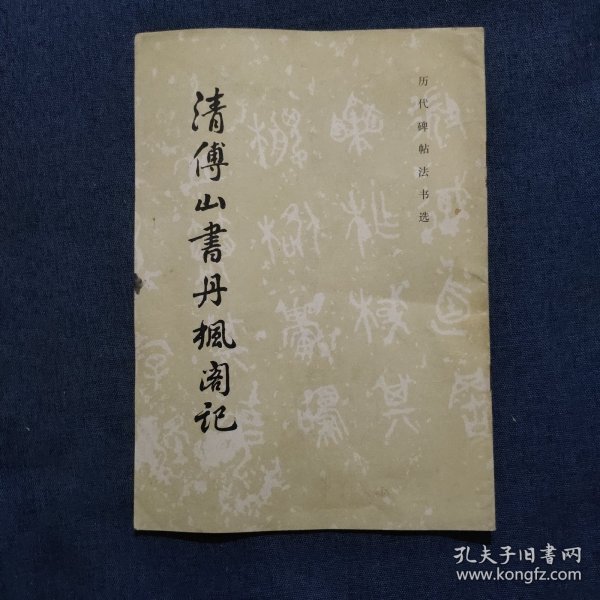 历代碑帖法书选
清傅山書丹楓阁记
孔夫子旧書网
www.kongfz.com